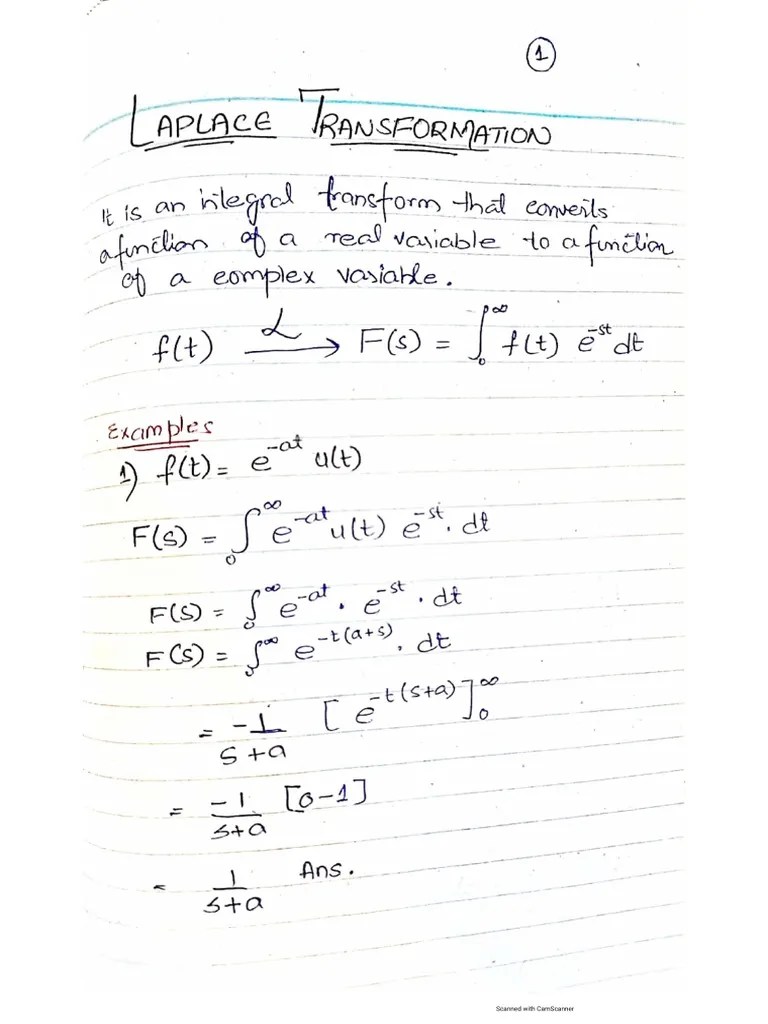 1
LAPLACE TRANSFORMATION
It is an integral transform that converts
a function of a real variable to a function
of a complex variable.
f(t) ℒ⟶ F(s) = ∫₀^∞ f(t) e^-st dt
Examples
1) f(t) = e^-at u(t)
F(s) = ∫₀^∞ e^-at u(t) e^-st . dt
F(s) = ∫₀^∞ e^-at . e^-st . dt
F(s) = ∫₀^∞ e^-t(a+s) . dt
= -1/(s+a) [e^-t(s+a)]₀^∞
= -1/(s+a) [0-1]
= 1/(s+a) Ans.
Scanned with CamScanner